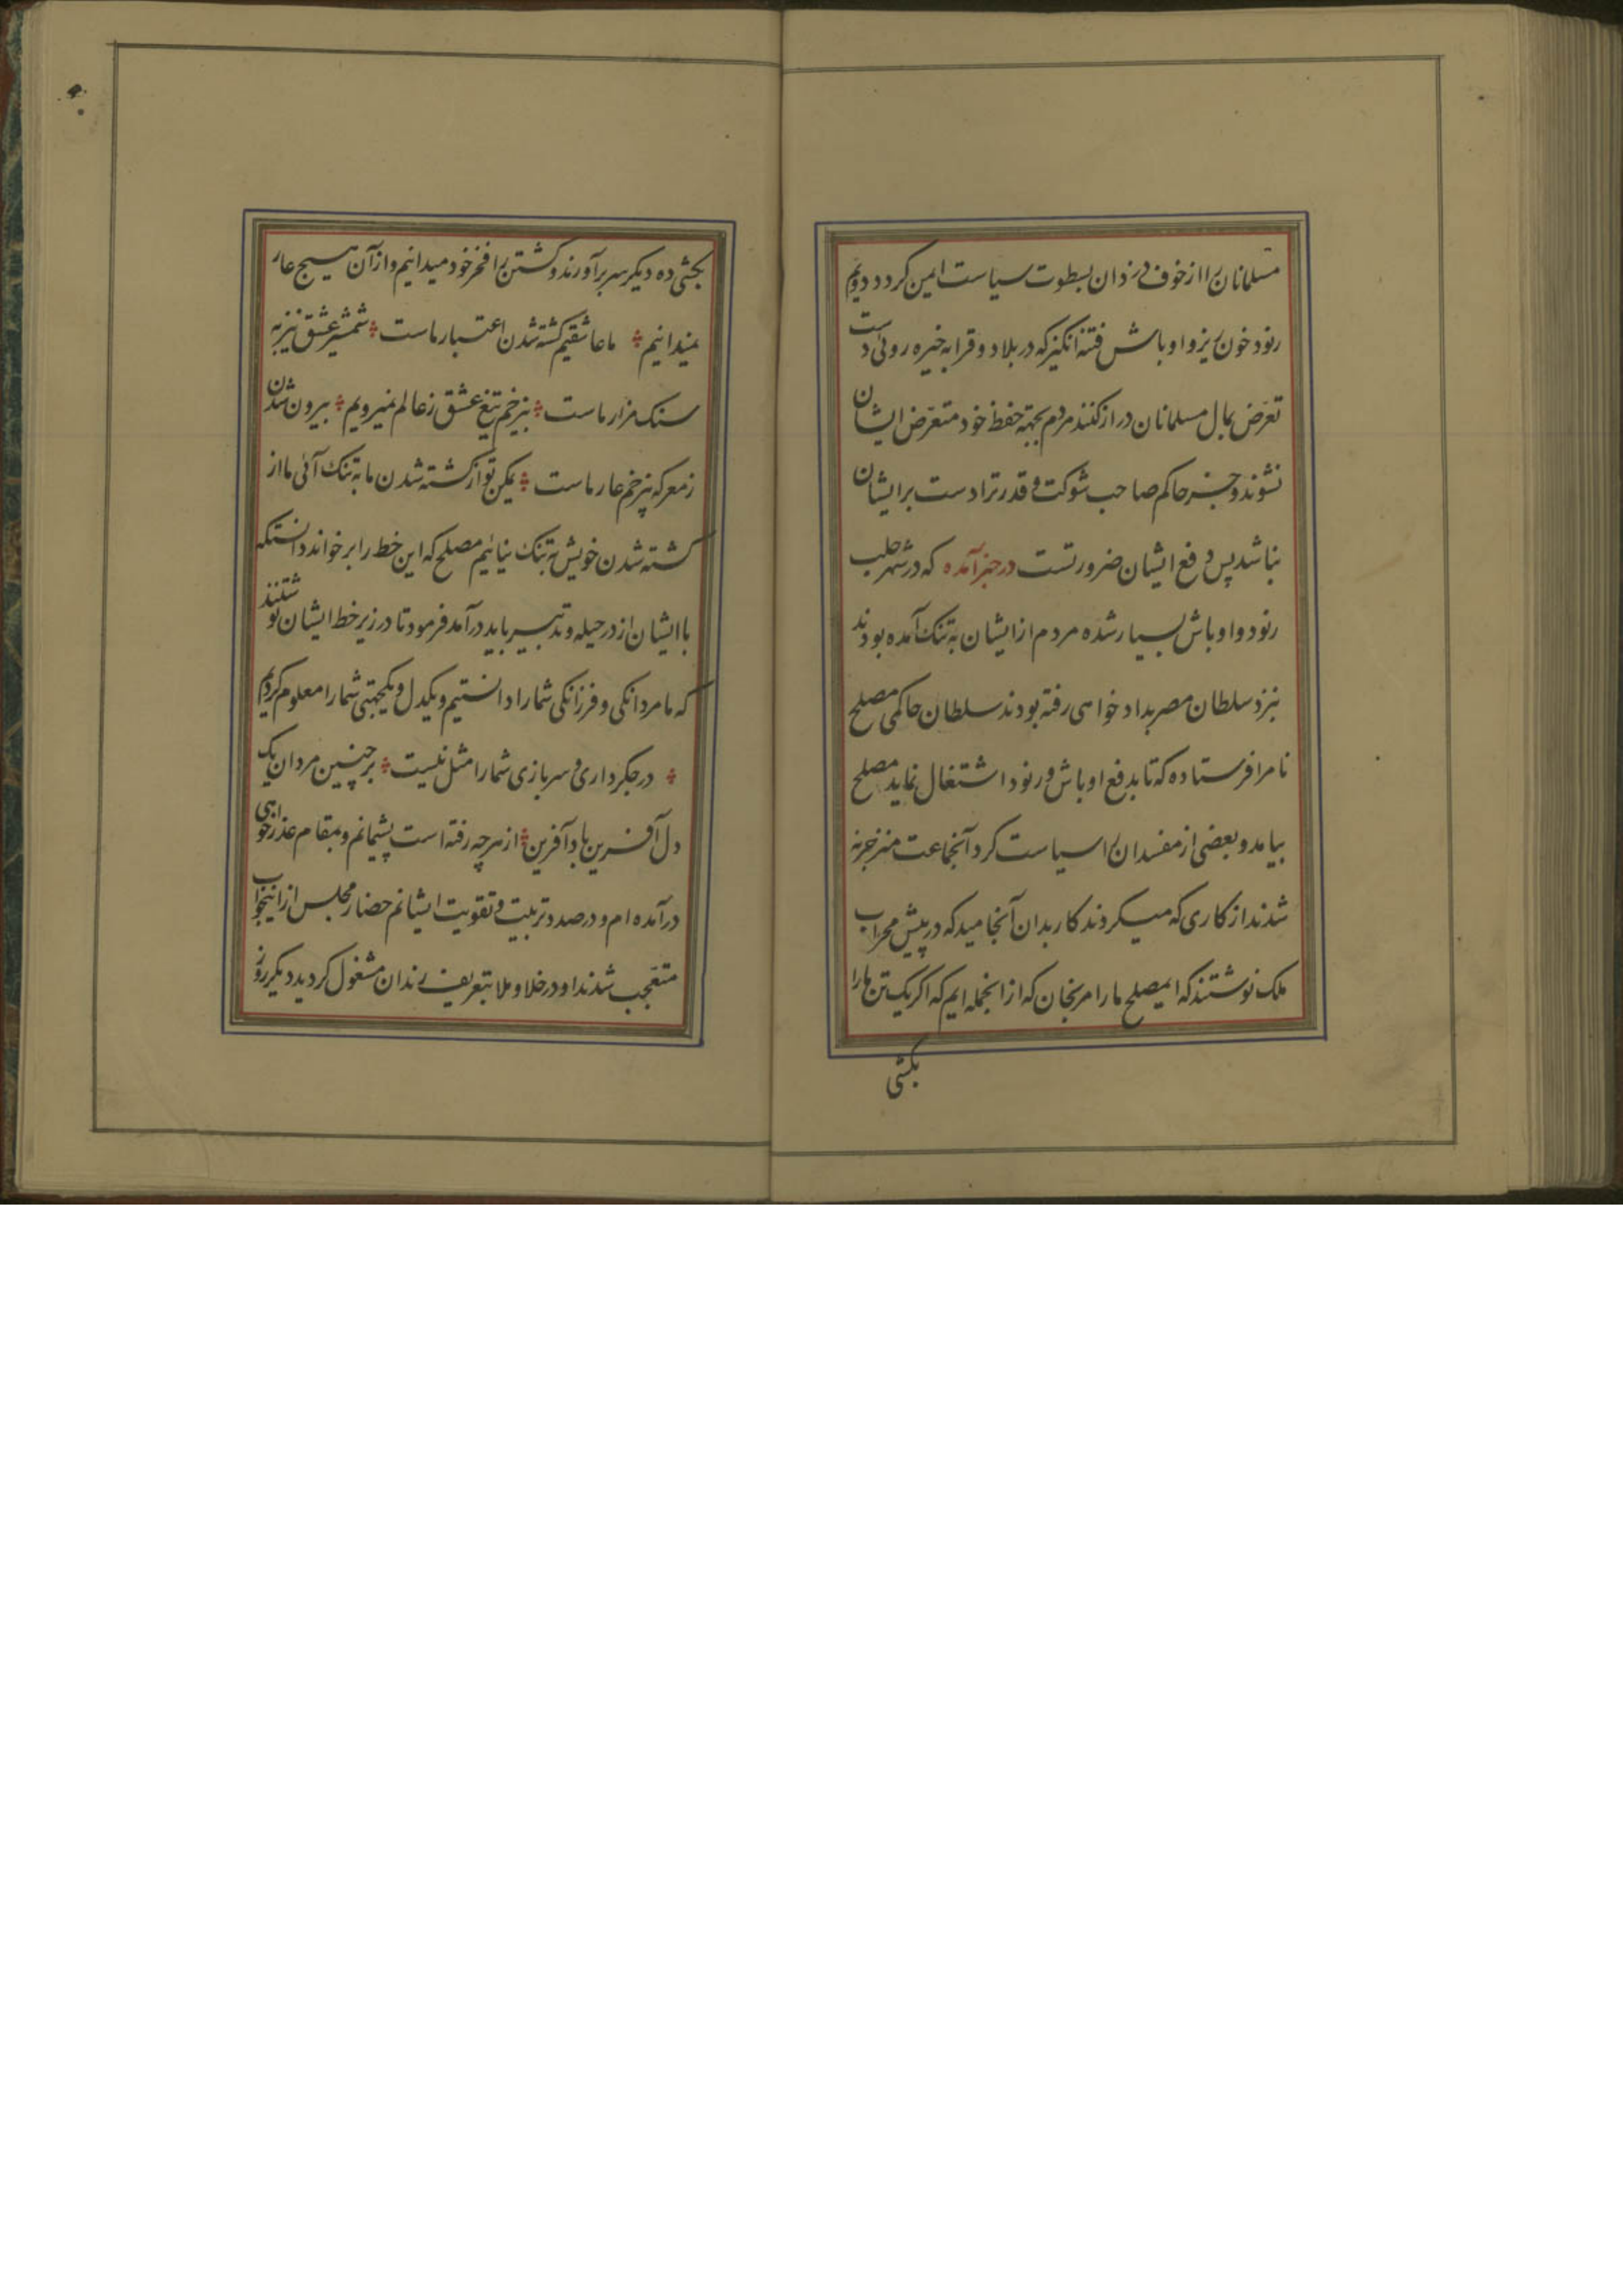 مسلمانان را از خوف دزدان بسطوت سیاست ایمن کردد دویم
رنود خون ریز و اوباش فتنه انکیز که در بلاد و قرا به خیره روئی دست
تعرّض بمال مسلمانان دراز کنند مردم بجهته حفظ خود متعرّض ایشان
نشوند و جز حاکم صاحب شوکت و قدرترا دست بر ایشان
نباشد پس دفع ایشان ضرورتست در خبر آمده که در شهر حلب
رنود و اوباش بسیار شده مردم از ایشان به تنک آمده بودند
نزد سلطان مصر بداد خواهی رفته بودند سلطان حاکمی مصلح
نام را فرستاده که تا بدفع اوباش و رنود اشتغال نماید مصلح
بیامد و بعضی از مفسدان را سیاست کرد آنجماعت منزجر نه
شدند از کاری که میکردند کار بدان آنجامید که در پیش محراب
ملک نوشتند که ایمصلح ما را مرنجان که از انجمله ایم که اکر یک تن ما را
بکشی
بکشی ده دیکر سر برآورند و کشتن را فخر خود میدانیم و از آن هیچ عار
نمیدانیم ما عاشقیم کشته شدن اعتبار ماست شمشیر عشق تیز به
سنک مزار ماست بیزخم تیغ عشق ز عالم نمیرویم بیرون شدن
ز معرکه بیزخم عار ماست لیکن تو از کشته شدن ما به تنک آئی ما از
کشته شدن خویش به تنک نیائیم مصلح که این خط را بر خواند دانستکه
با ایشان از در حیله و تدبیر باید درآمد فرمود تا در زیر خط ایشان نوشتند
که ما مردانکی و فرزانکی شما را دانستیم و یکدل و یکجهتی شما را معلوم کردیم
در جکرداری و سربازی شما را مثل نیست بر چنین مردان یک
دل آفرین باد آفرین از هرچه رفته است پشیمانم و بمقام عذرخواهی
درآمده ام و در صدد تربیت و تقویت ایشانم حضار مجلس از اینجواب
متعجب شدند او در خلا و ملا بتعریف رندان مشغول کردید دیکر روز